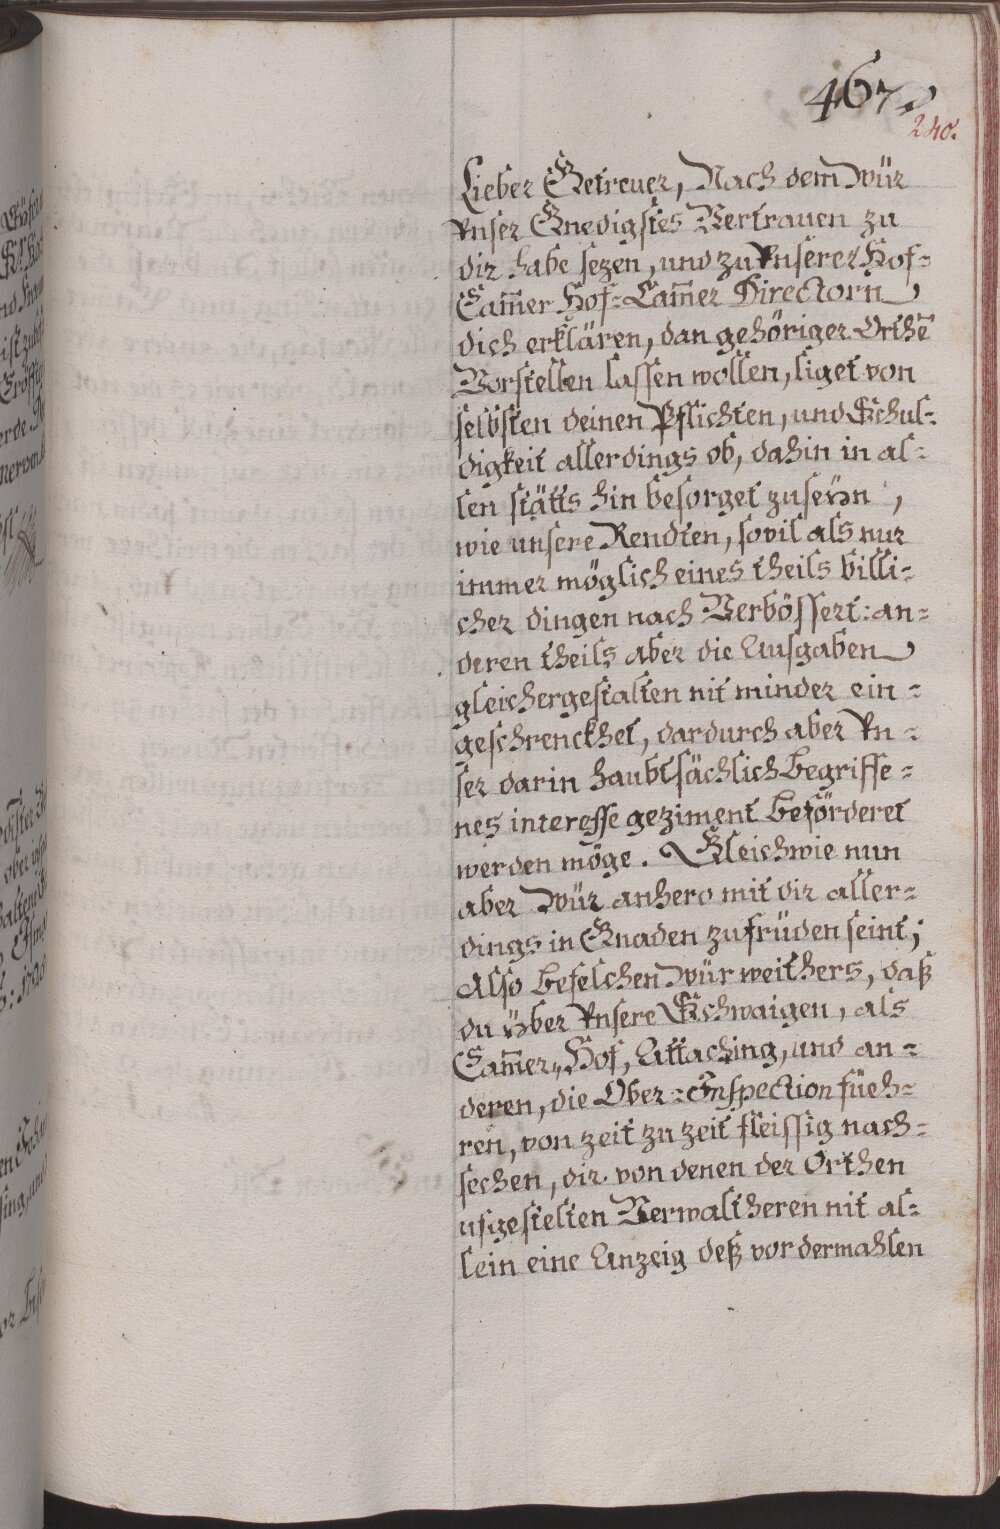 467.
240.
Lieber Getreuer, Nach dem Wür
Unser Gnedigstes Vertrauen zu
dir habe sezen, und zu Unserer Hof-
Cam̃er Hof-Cam̃er Directorn
dich erklären, dan gehöriger Orthen̄
Vorstellen lassen wollen, liget von
selbsten deinen Pflichten, und Schul-
digkeit allerdings ob, dahin in al-
len stätts hin besorget zuseÿn,
wie unsere Rendten, sovil als nur
immer möglich eines theils billi-
cher dingen nach Verbössert: an-
deren theils aber die Ausgaben
gleichergestalten nit minder ein-
geschrenckhet, dardurch aber Un-
ser darin haubtsächlich begriffe-
nes interesse geziment beförderet
werden möge. Gleichwie nun
aber Wür anhero mit dir aller-
dings in Gnaden zufrüden seint;
Also befelchen Wür weithers, daß
du über Unsere Schwaigen, als
Cam̃er, Hof, Attaching, und an-
deren, die Ober-Inspection füeh-
ren, von zeit zu zeit fleissig nach-
sechen, dir von denen der Orthen
ufgestelten Verwaltheren nit al-
lein eine Anzeig deß vordermahlen